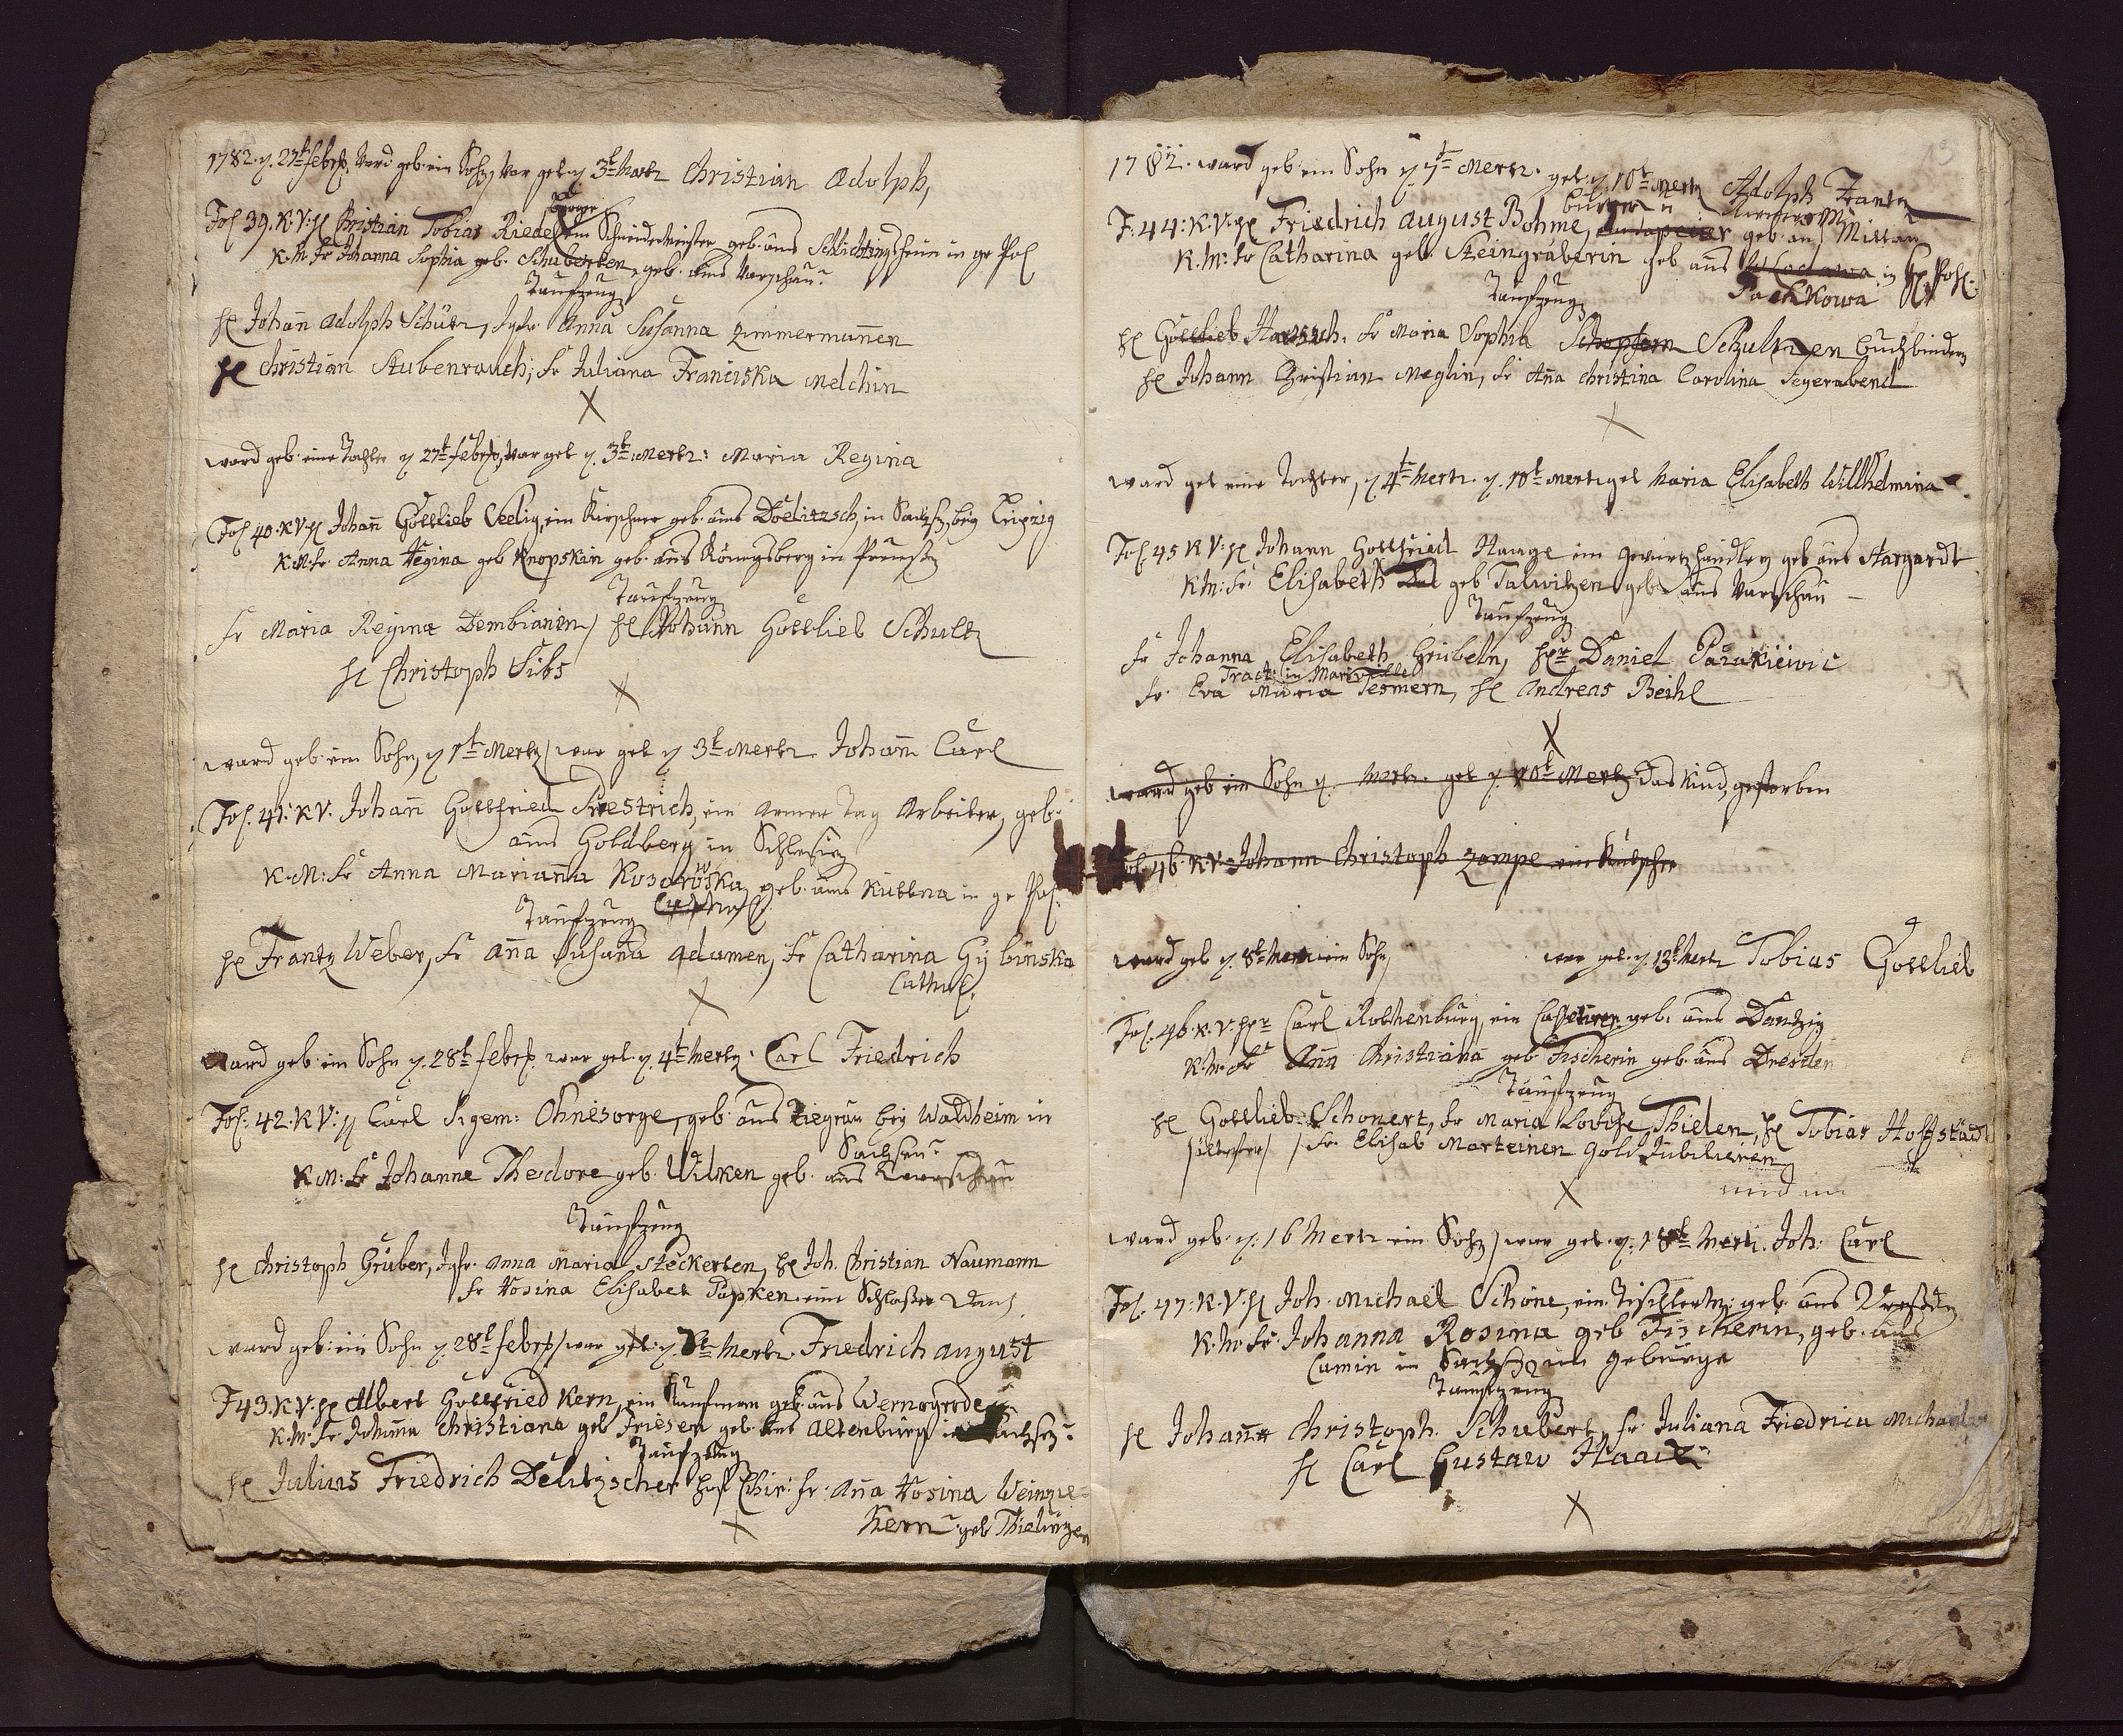 1782. d. 27t febr. Ward geb. ein Sohn, war get. d. 3t Mertz Christian Adolph,
Burger
Fol 39. K. V. H Christian Tobias Riedel ein Schneidermeister geb. aus Schlichtingsheim in gr Pol
K. M. Fr Johanna Sophia geb. Schuberten, geb. aus Warschau.
Taufzeug
H Johan Adolph Schütz, Jgfr Anna Susanna Zimmermannen
H Christian Stubenrauch; Fr Juliana Franciska Melchin
X
ward geb. eine Tochter d 27t febr, war get d. 3t Mertz: Maria Regina
Fol 40. K V H Johan Gottlieb Veelig, ein Kirschner geb. aus Doelitzsch, in Sachs, bey Leipzig
K. M. Fr Anna Regina geb Knopskin geb. aus Königsberg in Preussen
Taufzeug
Fr Maria Regina Dembianin / H Johann Gottlieb Schultz
H Christoph Sibs
X
ward geb. ein Sohn, d 1t Mertz / war get d 3t Mertz Johann Carl
Fol. 41. K V. Johan Gottfried Siestrich, ein armer Tag Arbeiter, geb.
aus Goldberg in Schlesien
K. M: Fr Anna Marianna Rosarowska, geb. aus Kuttna in gr Pol.
Taufzeug
H Frantz Weber, Fr Anna Susana Adamen, Fr Catharina Gybinska
Cathol.
X
Ward geb. ein Sohn d. 28t febr. war get. d. 4t Mertz. Carl Friedrich
Fol: 42. K V: H Carl Sigem: Ohnesorge, geb. aus Ziegrau bey Waldheim in
Sachsen.
K M: Fr Johanne Theodore geb. Wilken geb. aus Warschau
Taufzeug
H Christoph Gruber, Jgfr. Anna Maria Steckerten, H Joh. Christian Naumann
Fr Rosina Elisabet Papken eine Schlosser
ward geb. ein Sohn d. 28t febr / war get. d. 8t Mertz. Friedrich August
F 43. K. V. H Albert Gottfried Kern, ein Kaufmann geb. aus Wernogrode
K. M. Fr Johanna Christiana geb Friesen geb. aus Altenburg in Sachsen.
Taufzeug
H Julius Friedrich Delitzscher Hof Chir: Fr. Anna Rosina Weinzie-
Kern geb Thielingen
X
13
1782. ward geb. ein Sohn d 7t Mertz. get. d. 10t Mertz Adolph Frantz
Burger u
F. 44: K. V. H Friedrich August Böhme, geb. aus Mittau
K. M: Fr Catharina geb. Steingräberin geb aus Wlodawa in Gr Pohl.
Paczkowa
Taufzeug
H Gottlieb Fr Maria Sophia Schopfern Schultzen Buchbindern
H Johann Christian Meglin, Fr Ana Christina Carolina Feyerabend
X
ward get eine Tochter, d 4t Mertz. d. 10t Mertz get Maria Elisabeth Willhelmina
Fol. 45 K V: H Johann Gottfried Haage ein gewürtzhändler, geb aus Stargardt
K M: Fr. Elisabeth geb Talwitzen geb aus Warschau
Taufzeug
Fr Johanna Elisabeth Grübeln, Her Daniel
Tract: in Mariville
Fr. Eva Maria Tesmern, H Andreas Beihl
X
ward geb ein Sohn d. Mertz. get d. 10t Mertz das Kind gestorben
Fol 46. K V. Johann Christoph Zompe ein Kutscher
ward geb d. 8t Mertz ein Sohn war get. d. 13t Mertz Tobias Gottlieb
Fol. 46. K. V. Hr Carl Rothenburg, ein geb. aus Dantzig
K. M. Fr Ana Christiana geb Fischerin geb. aus Dresden
Taufzeug
H Gottlieb Schonert, Fr Maria Lovise Thielen, H Tobias Hoffstädt
/ältester/ / Fr. Elisab Marteinen Gold Jubilieren
X
ward geb. d. 16 Mertz ein Sohn / war get. d. 18t Mertz. Joh: Carl
Fol. 47. K. V. H Joh. Michael Schöne, ein Tischlerm, geb. aus Dresden
K. M. Fr. Johanna Rosina geb Fischerin, geb. aus
Camin in Sachs im geburge
Taufzeug
H Johann Christoph Schubert, Fr Juliana Friedrica
H Carl Gustav Haack
X